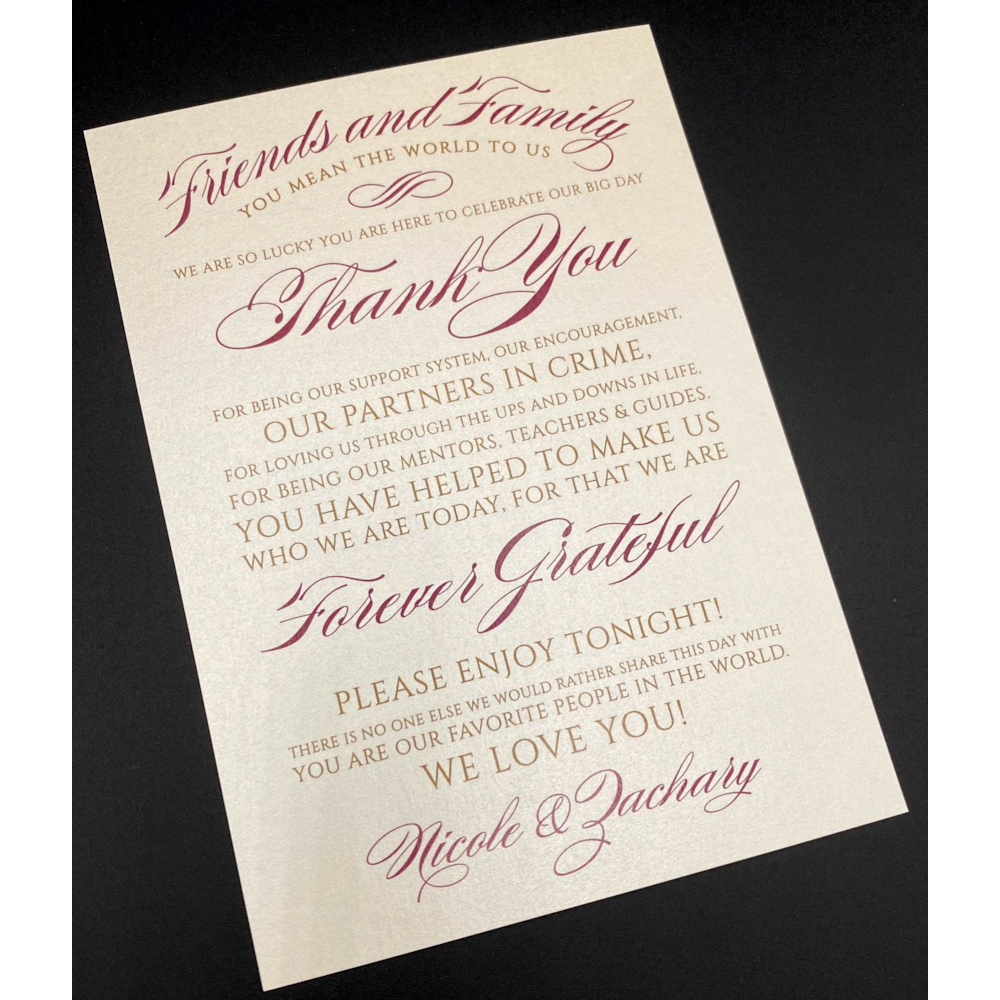 Friends and Family
YOU MEAN THE WORLD TO US
WE ARE SO LUCKY YOU ARE HERE TO CELEBRATE OUR BIG DAY
Thank You
FOR BEING OUR SUPPORT SYSTEM, OUR ENCOURAGEMENT,
OUR PARTNERS IN CRIME,
FOR LOVING US THROUGH THE UPS AND DOWNS IN LIFE,
FOR BEING OUR MENTORS, TEACHERS & GUIDES.
YOU HAVE HELPED TO MAKE US
WHO WE ARE TODAY, FOR THAT WE ARE
Forever Grateful
PLEASE ENJOY TONIGHT!
THERE IS NO ONE ELSE WE WOULD RATHER SHARE THIS DAY WITH
YOU ARE OUR FAVORITE PEOPLE IN THE WORLD.
WE LOVE YOU!
Nicole & Zachary